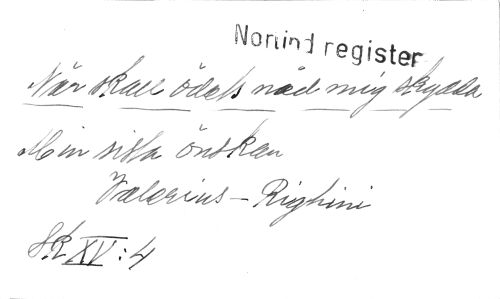 Nominal register
När skall ödets nåd mig skydda
Min sista önskan
Valerius - Righini
Sk XV : 4